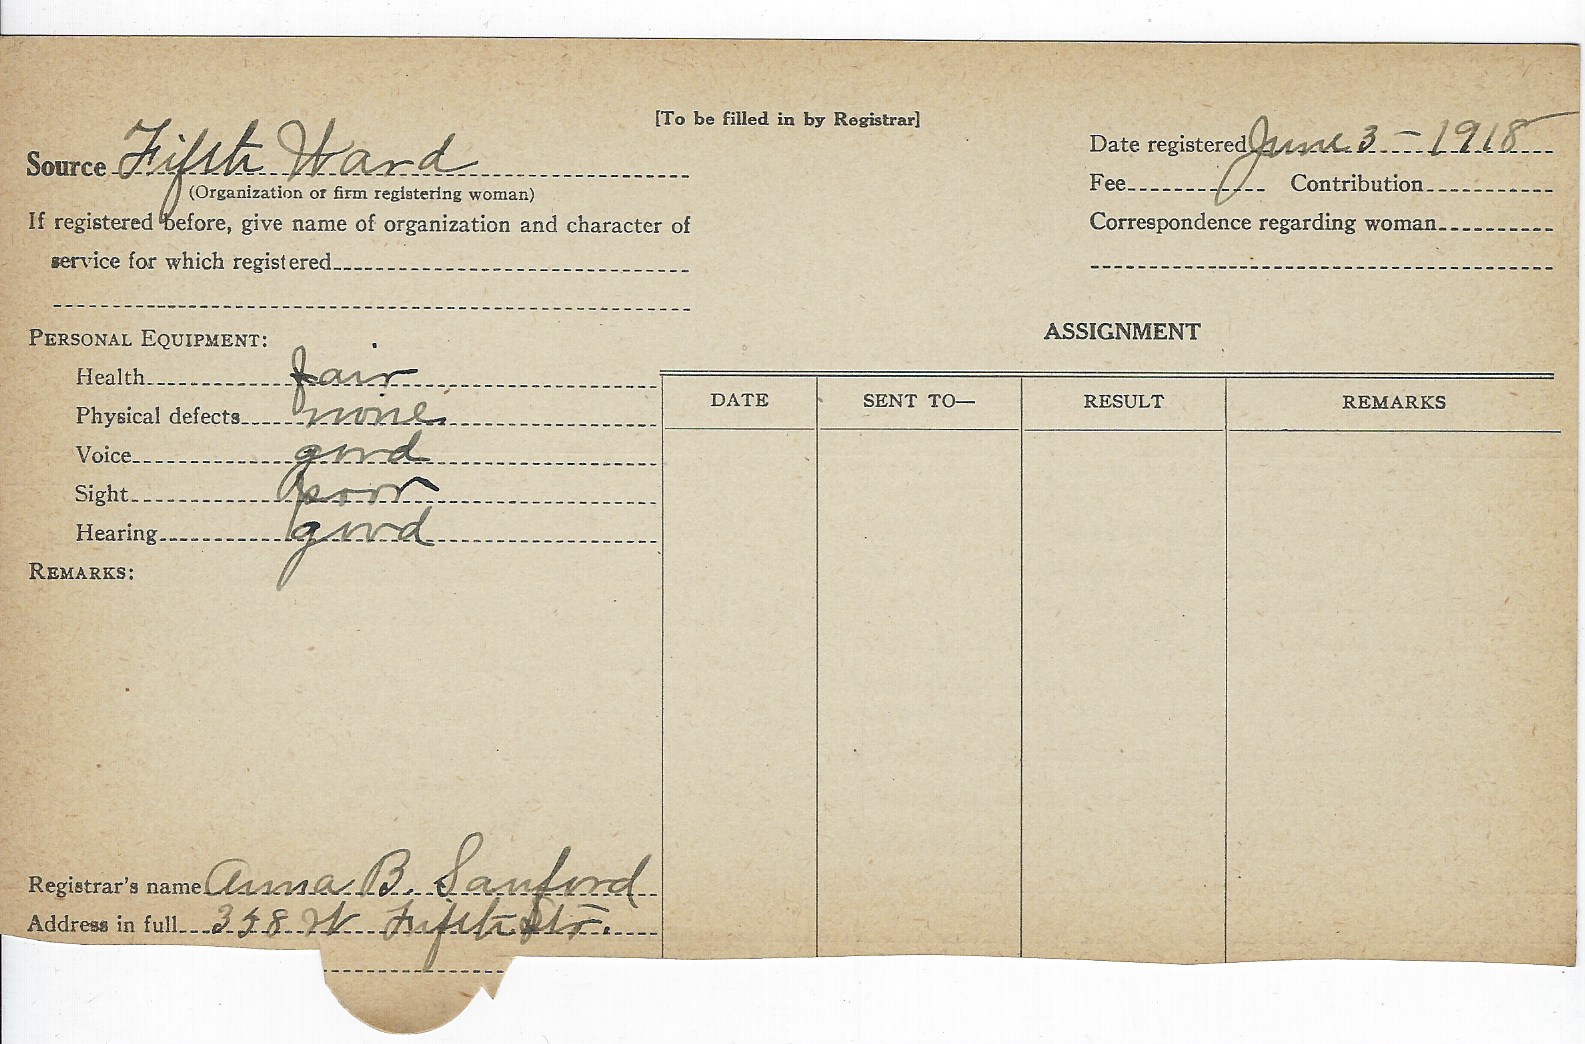 [To be filled in by Registrar]
Source Fifth Ward
(Organization or firm registering woman)
If registered before, give name of organization and character of
service for which registered
Date registered June 3 - 1918
Fee Contribution
Correspondence regarding woman
PERSONAL EQUIPMENT:
Health fair
Physical defects none
Voice good
Sight poor
Hearing good
REMARKS:
ASSIGNMENT
DATE SENT TO— RESULT REMARKS
Registrar's name Anna B. Sanford
Address in full 358 W Fifth Str.